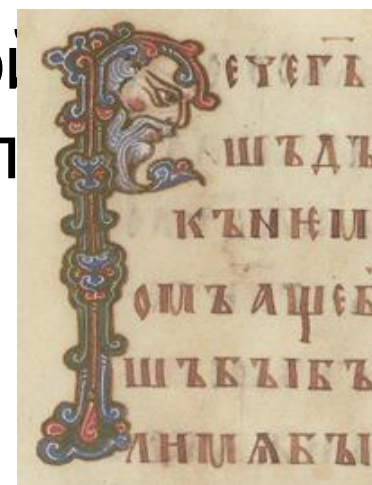 РЕЧЕГ҃Ь
ШЪДЪ
КЪНѤМ
ОМЪАЩЕБ
ШЪБЪІБЪ
ЛИМѦБЪІ